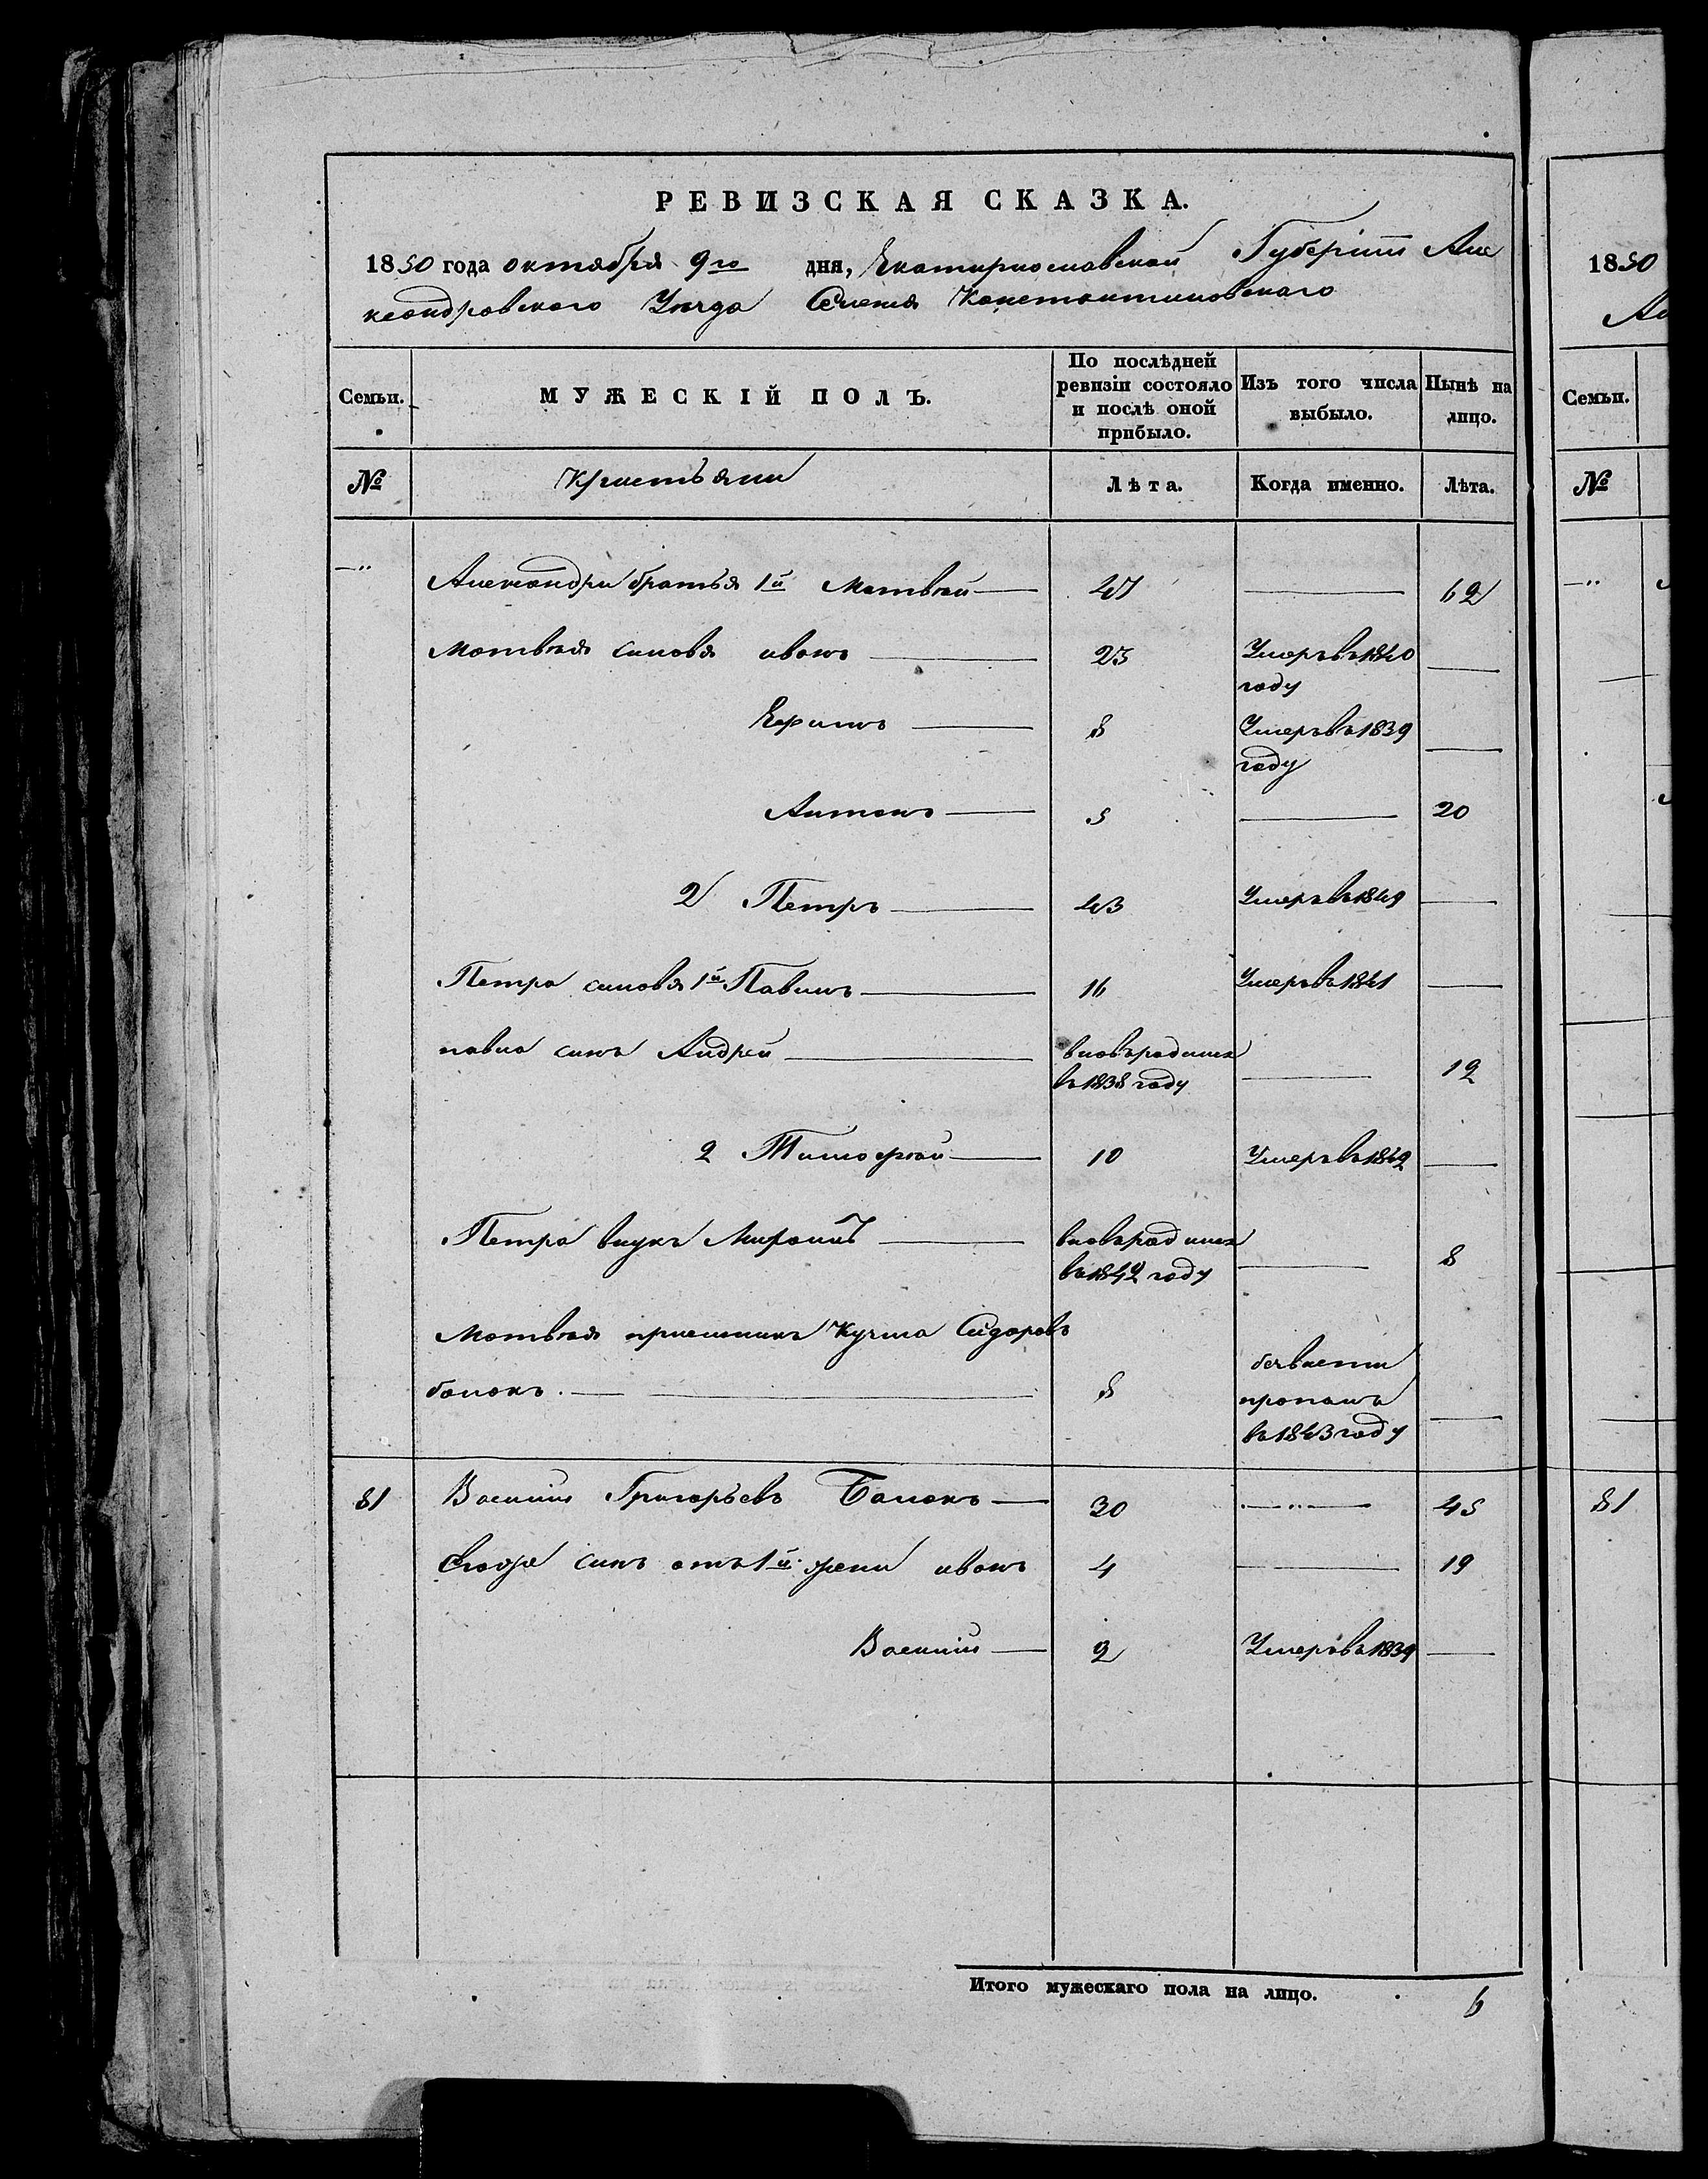 РЕВИЗСКАЯ СКАЗКА.
1850 года октября 9го дня, Екатиринославской Губерніи Але
ксандровского Уезда Селения Константиновскаго
Семьи. МУЖЕСКІЙ ПОЛЪ. По послѣдней ревизіи состояло и послѣ оной прибыло. Изъ того числа выбыло. Нынѣ на лицо.
№ Кристьяни Лѣта. Когда именно. Лѣта.
—„ Александри братья 1й Матвѣй — 47 — 62
Матвѣя синовя иванъ — 25 Умеръ въ 1840 году —
Ефимъ — 8 Умеръ въ 1839 году —
Антонъ — 5 — 20
2 Петръ — 43 Умеръ въ 1849 —
Петра синовя 1й Павилъ — 16 Умеръ въ 1841 —
павла синъ Андрей — вновь родился въ 1838 году — 12
2 Тимофѣй — 10 Умеръ въ 1842 —
Петра внукъ Миронъ — вновь родился въ 1842 году — 8
Матвѣя приемникъ Кузма Сидоровъ
балокъ. — 8 безвѣсти пропалъ въ 1843 году —
81 Василий Григорьевъ Балокъ — 30 —„— 45
Егоже синъ отъ 1й жени иванъ 4 — 19
Василий — 2 Умеръ въ 1839 —
Итого мужескаго пола на лицо. 6
1850
Ал
Семьи.
№
—„
81